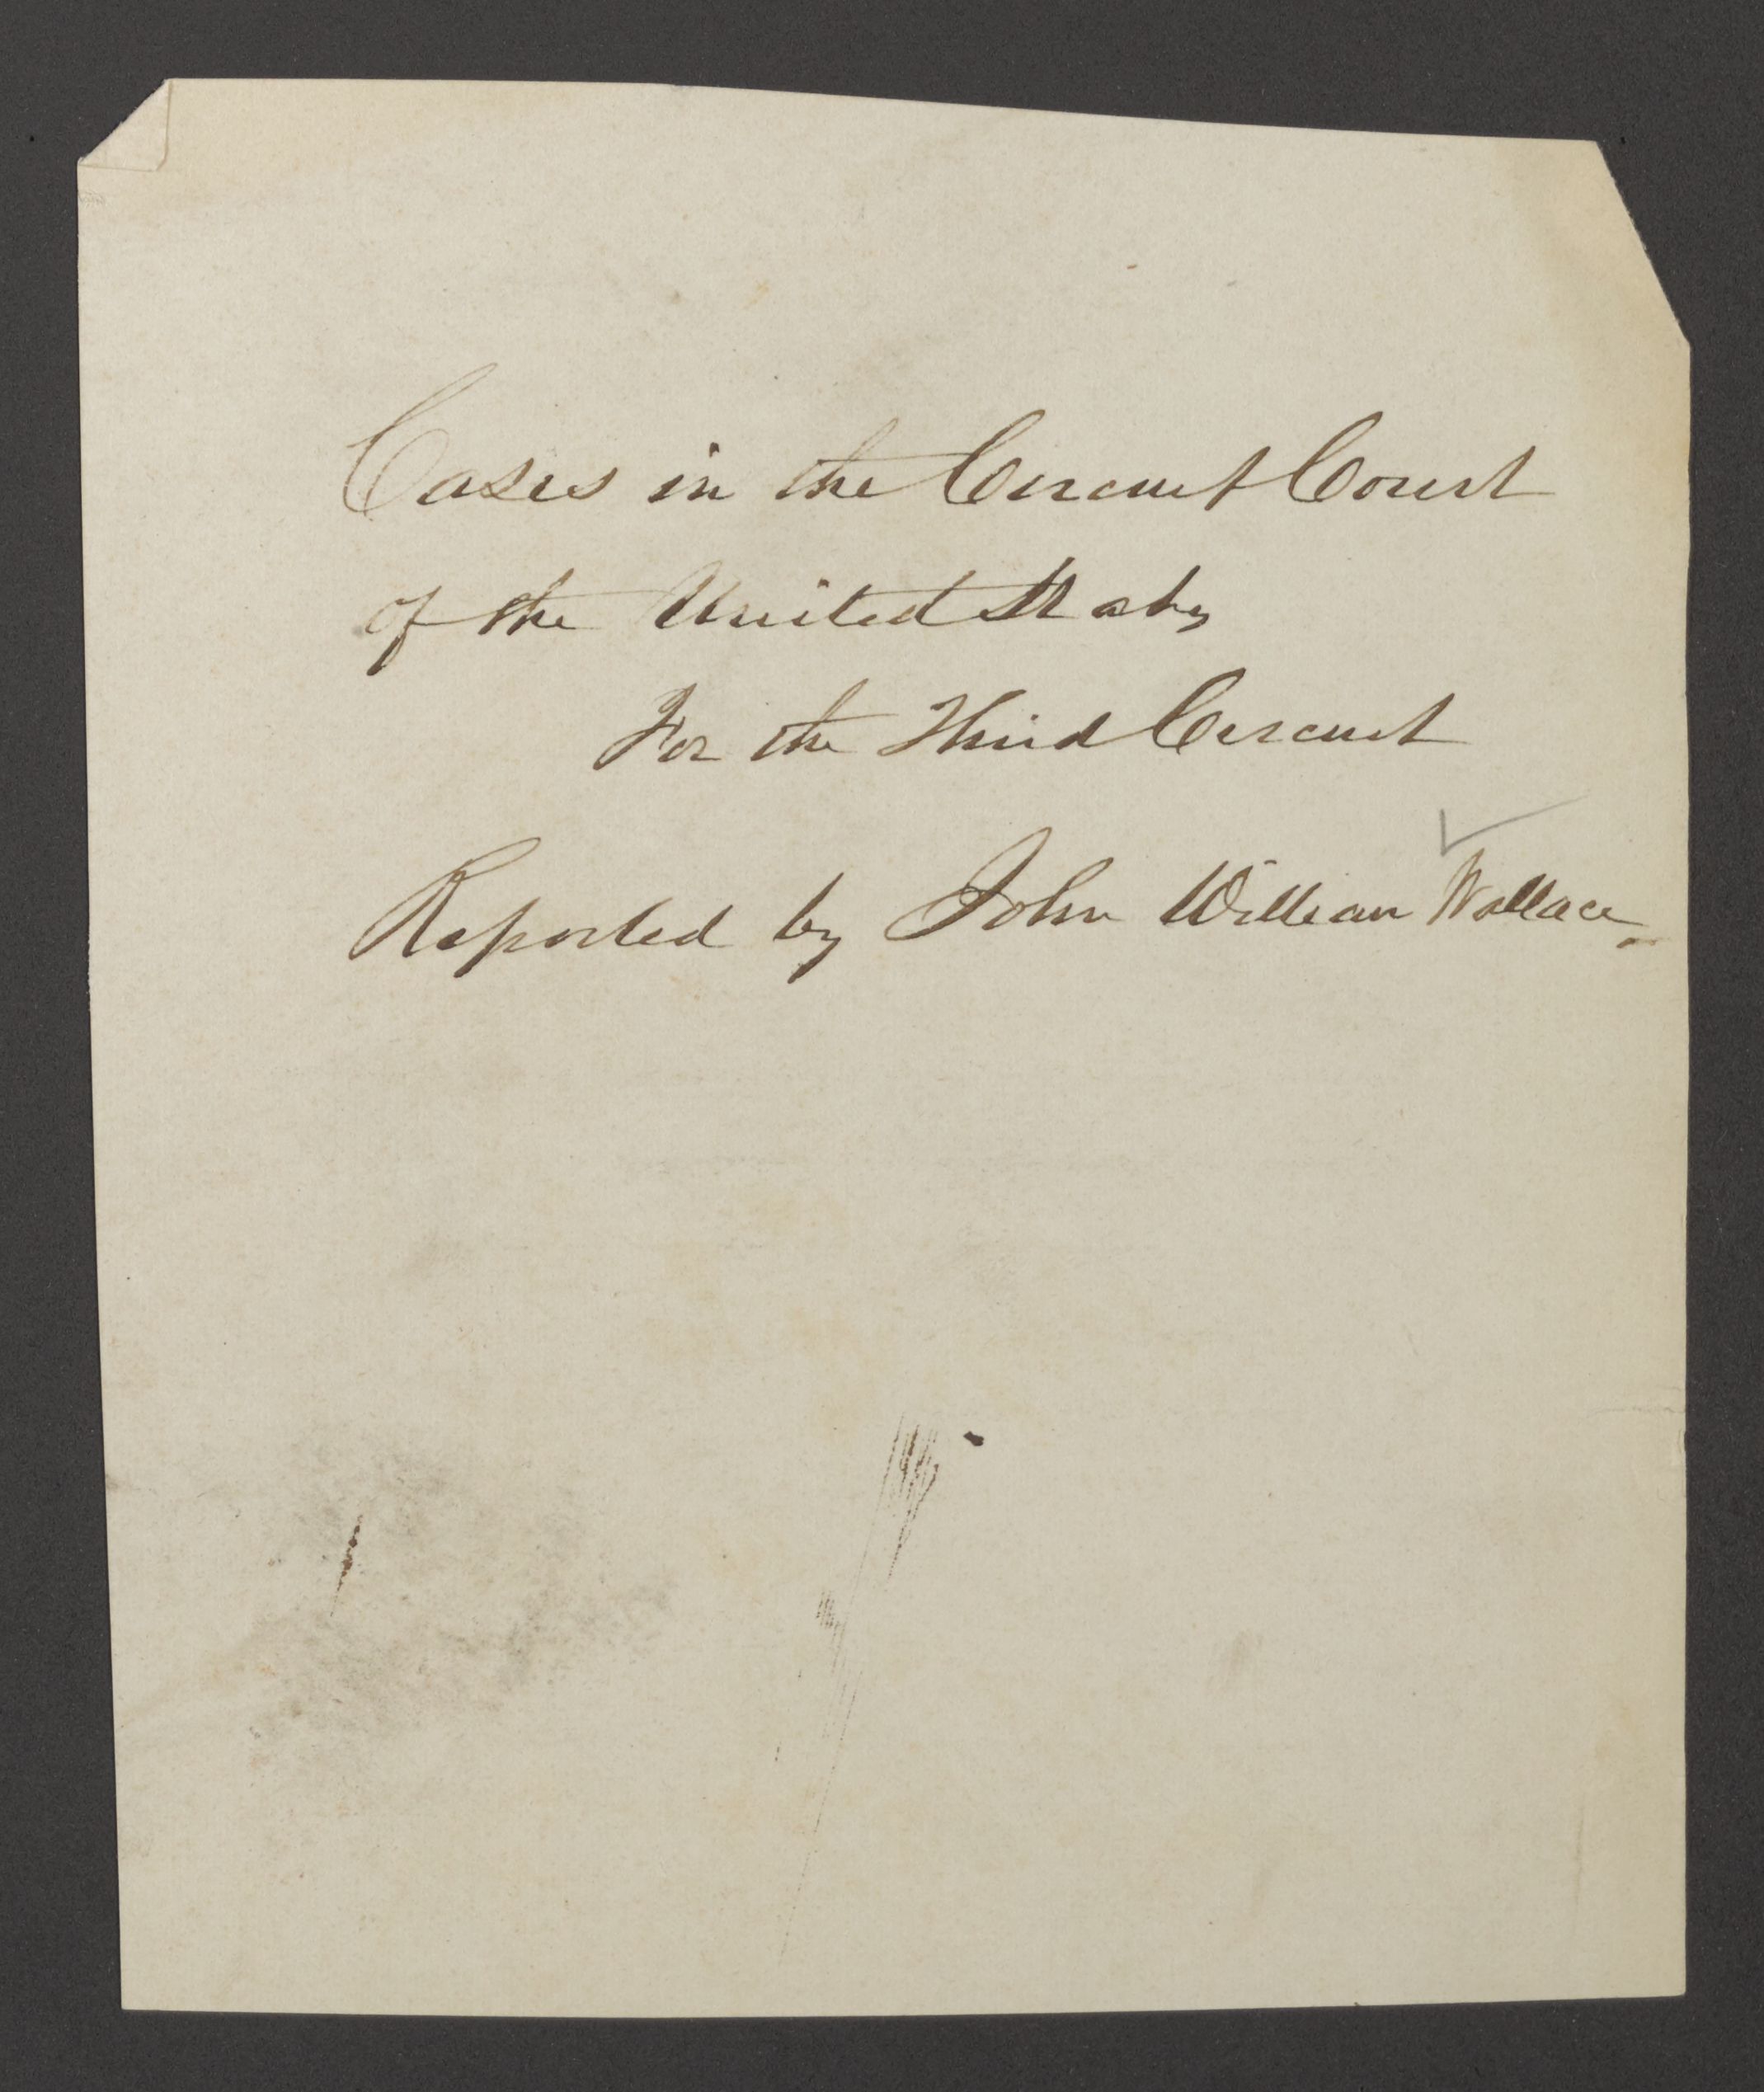 Cases in the Circuit Court
of the United States
For the Third Circuit
Reported by John William Wallace.